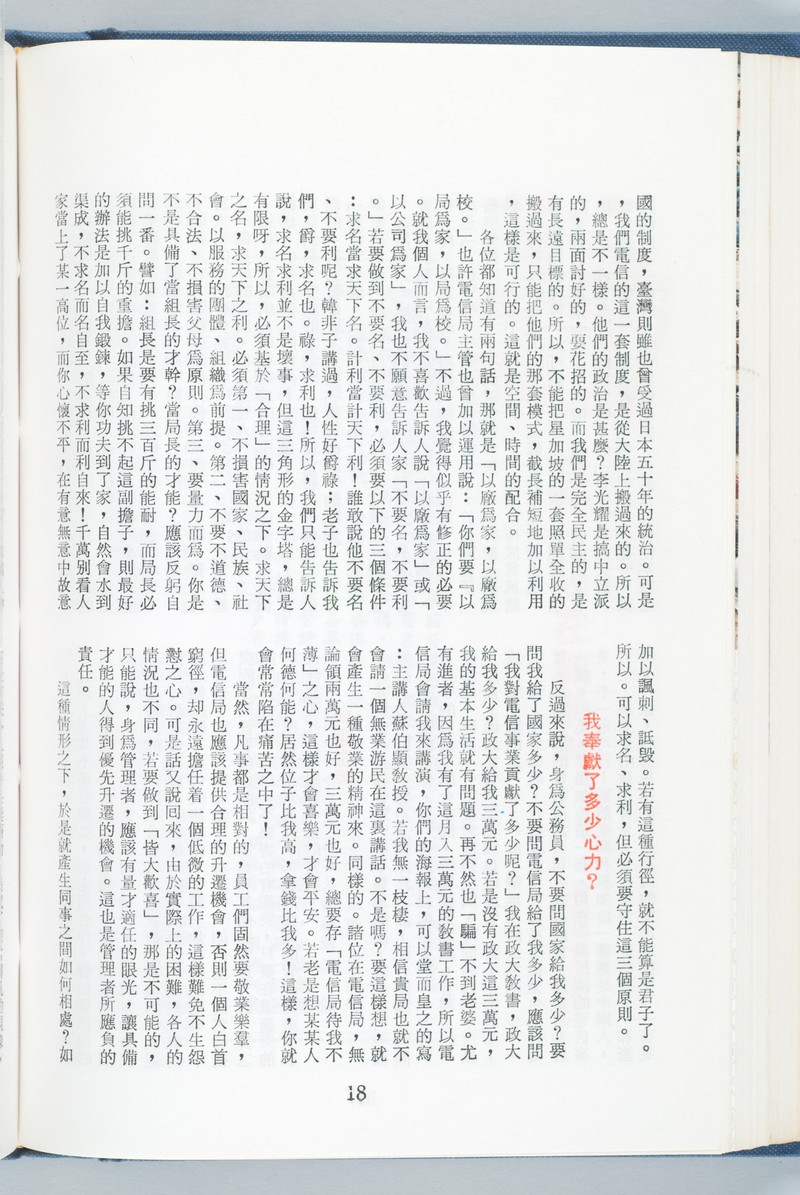 國的制度，臺灣則雖也曾受過日本五十年的統治。可是
，我們電信的這一套制度，是從大陸上搬過來的。所以
，總是不一樣。他們的政治是甚麼？李光耀是搞中立派
的，兩面討好的，耍花招的。而我們是完全民主的，是
有長遠目標的。所以，不能把星加坡的一套照單全收的
搬過來，只能把他們的那套模式，截長補短地加以利用
，這樣是可行的。這就是空間、時間的配合。
各位都知道有兩句話，那就是「以廠爲家，以廠爲
校。」也許電信局主管也曾加以運用說：「你們要『以
局爲家，以局爲校。」不過，我覺得似乎有修正的必要
。就我個人而言，我不喜歡告訴人說「以廠爲家」或「
以公司爲家」，我也不願意告訴人家「不要名，不要利
。」若要做到不要名、不要利，必須要以下的三個條件
：求名當求天下名。計利當計天下利！誰敢說他不要名
、不要利呢？韓非子講過，人性好爵祿；老子也告訴我
們，爵，求名也。祿，求利也！所以，我們只能告訴人
說，求名求利並不是壞事，但這三角形的金字塔，總是
有限呀，所以，必須基於「合理」的情況之下。求天下
之名，求天下之利。必須第一、不損害國家、民族、社
會。以服務的團體、組織爲前提。第二、不要不道德、
不合法、不損害父母爲原則。第三、要量力而爲。你是
不是具備了當組長的才幹？當局長的才能？應該反躬自
問一番。譬如：組長是要有挑三百斤的能耐，而局長必
須能挑千斤的重擔。如果自知挑不起這副擔子，則最好
的辦法是加以自我鍛鍊，等你功夫到了家，自然會水到
渠成，不求名而名自至，不求利而利自來！千萬別看人
家當上了某一高位，而你心懷不平，在有意無意中故意
加以諷刺、詆毀。若有這種行徑，就不能算是君子了。
所以。可以求名、求利，但必須要守住這三個原則。
我奉獻了多少心力？
反過來說，身爲公務員，不要問國家給我多少？要
問我給了國家多少？不要問電信局給了我多少，應該問
「我對電信事業貢獻了多少呢？」我在政大教書，政大
給我多少？政大給我三萬元。若是沒有政大這三萬元，
我的基本生活就有問題。再不然也「騙」不到老婆。尤
有進者，因爲我有了這月入三萬元的敎書工作，所以電
信局會請我來講演，你們的海報上，可以堂而皇之的寫
：主講人蘇伯顯敎授。若我無一枝棲，相信貴局也就不
會請一個無業游民在這裏講話。不是嗎？要這樣想，就
會產生一種敬業的精神來。同樣的。諸位在電信局，無
論領兩萬元也好，三萬元也好，總要存「電信局待我不
薄」之心，這樣才會喜樂，才會平安。若老是想某某人
何德何能？居然位子比我高，拿錢比我多！這樣，你就
會常常陷在痛苦之中了！
當然，凡事都是相對的，員工們固然要敬業樂羣，
但電信局也應該提供合理的升遷機會，否則一個人白首
窮徑，却永遠擔任着一個低微的工作，這樣難免不生怨
懟之心。可是話又說回來，由於實際上的困難，各人的
情況也不同，若要做到「皆大歡喜」，那是不可能的，
只能說，身爲管理者，應該有量才適任的眼光，讓具備
才能的人得到優先升遷的機會。這也是管理者所應負的
責任。
這種情形之下，於是就產生同事之間如何相處？如
18